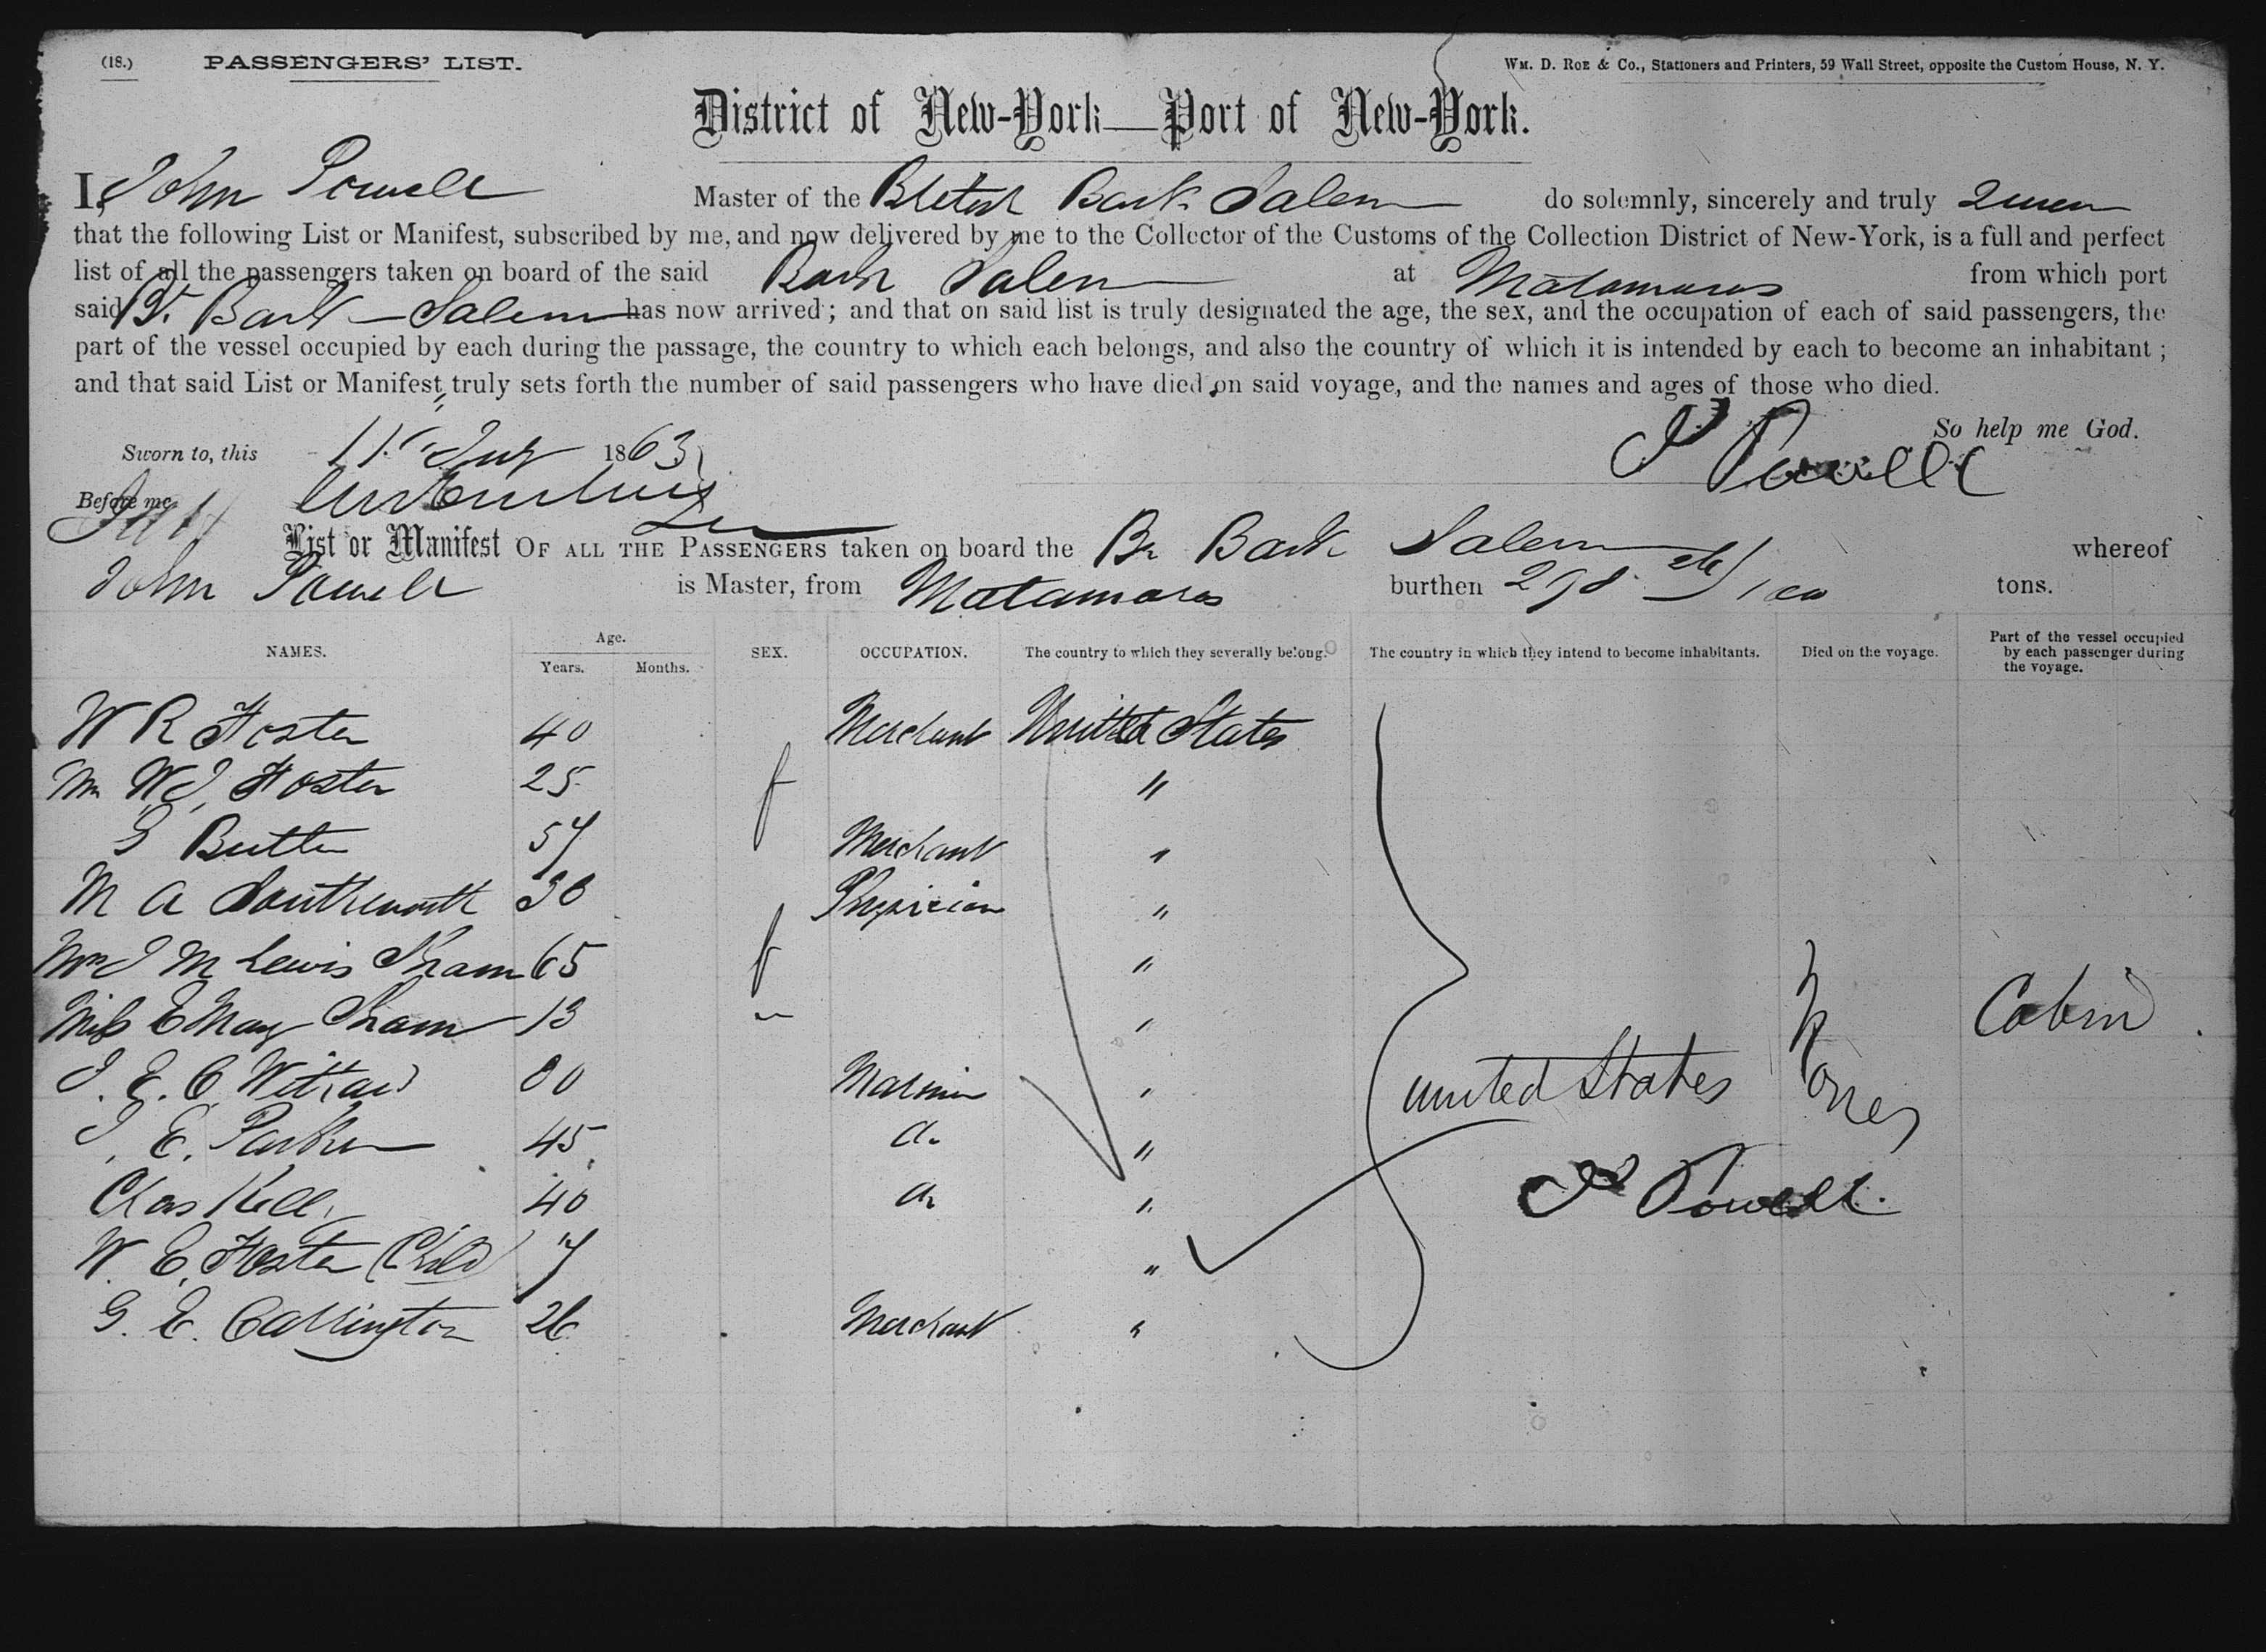 (18.) PASSENGERS' LIST. WM. D. ROE & Co., Stationers and Printers, 59 Wall Street, opposite the Custom House, N. Y.
District of New-York—Port of New-York.
I, John Powell Master of the British Bark Salem do solemnly, sincerely and truly
that the following List or Manifest, subscribed by me, and now delivered by me to the Collector of the Customs of the Collection District of New-York, is a full and perfect
list of all the passengers taken on board of the said Bark Salem at Matamoros from which port
said Br. Bark Salem has now arrived; and that on said list is truly designated the age, the sex, and the occupation of each of said passengers, the
part of the vessel occupied by each during the passage, the country to which each belongs, and also the country of which it is intended by each to become an inhabitant;
and that said List or Manifest truly sets forth the number of said passengers who have died on said voyage, and the names and ages of those who died.
So help me God.
Sworn to, this 11 1863
J Powell
Before me
List or Manifest OF ALL THE PASSENGERS taken on board the Br Bark Salem whereof
John Powell is Master, from Matamoros burthen 298 /100 tons.
NAMES. Age. Years. Months. SEX. OCCUPATION. The country to which they severally belong. The country in which they intend to become inhabitants. Died on the voyage. Part of the vessel occupied by each passenger during the voyage.
W R Foster 40 Merchant United States
W J Foster 25 f "
G Butler 57 Merchant "
M A Southworth 30 Physician "
J M Lewis 65 f "
Miss E May 13 " "
J. E. C. Mariner "
J. E. Parker 45 do "
Chas Kelly 40 do "
W. E. Foster (Child) 7 "
G. E. Carrington 26 Merchant "
United States
None
Cabin
J Powell